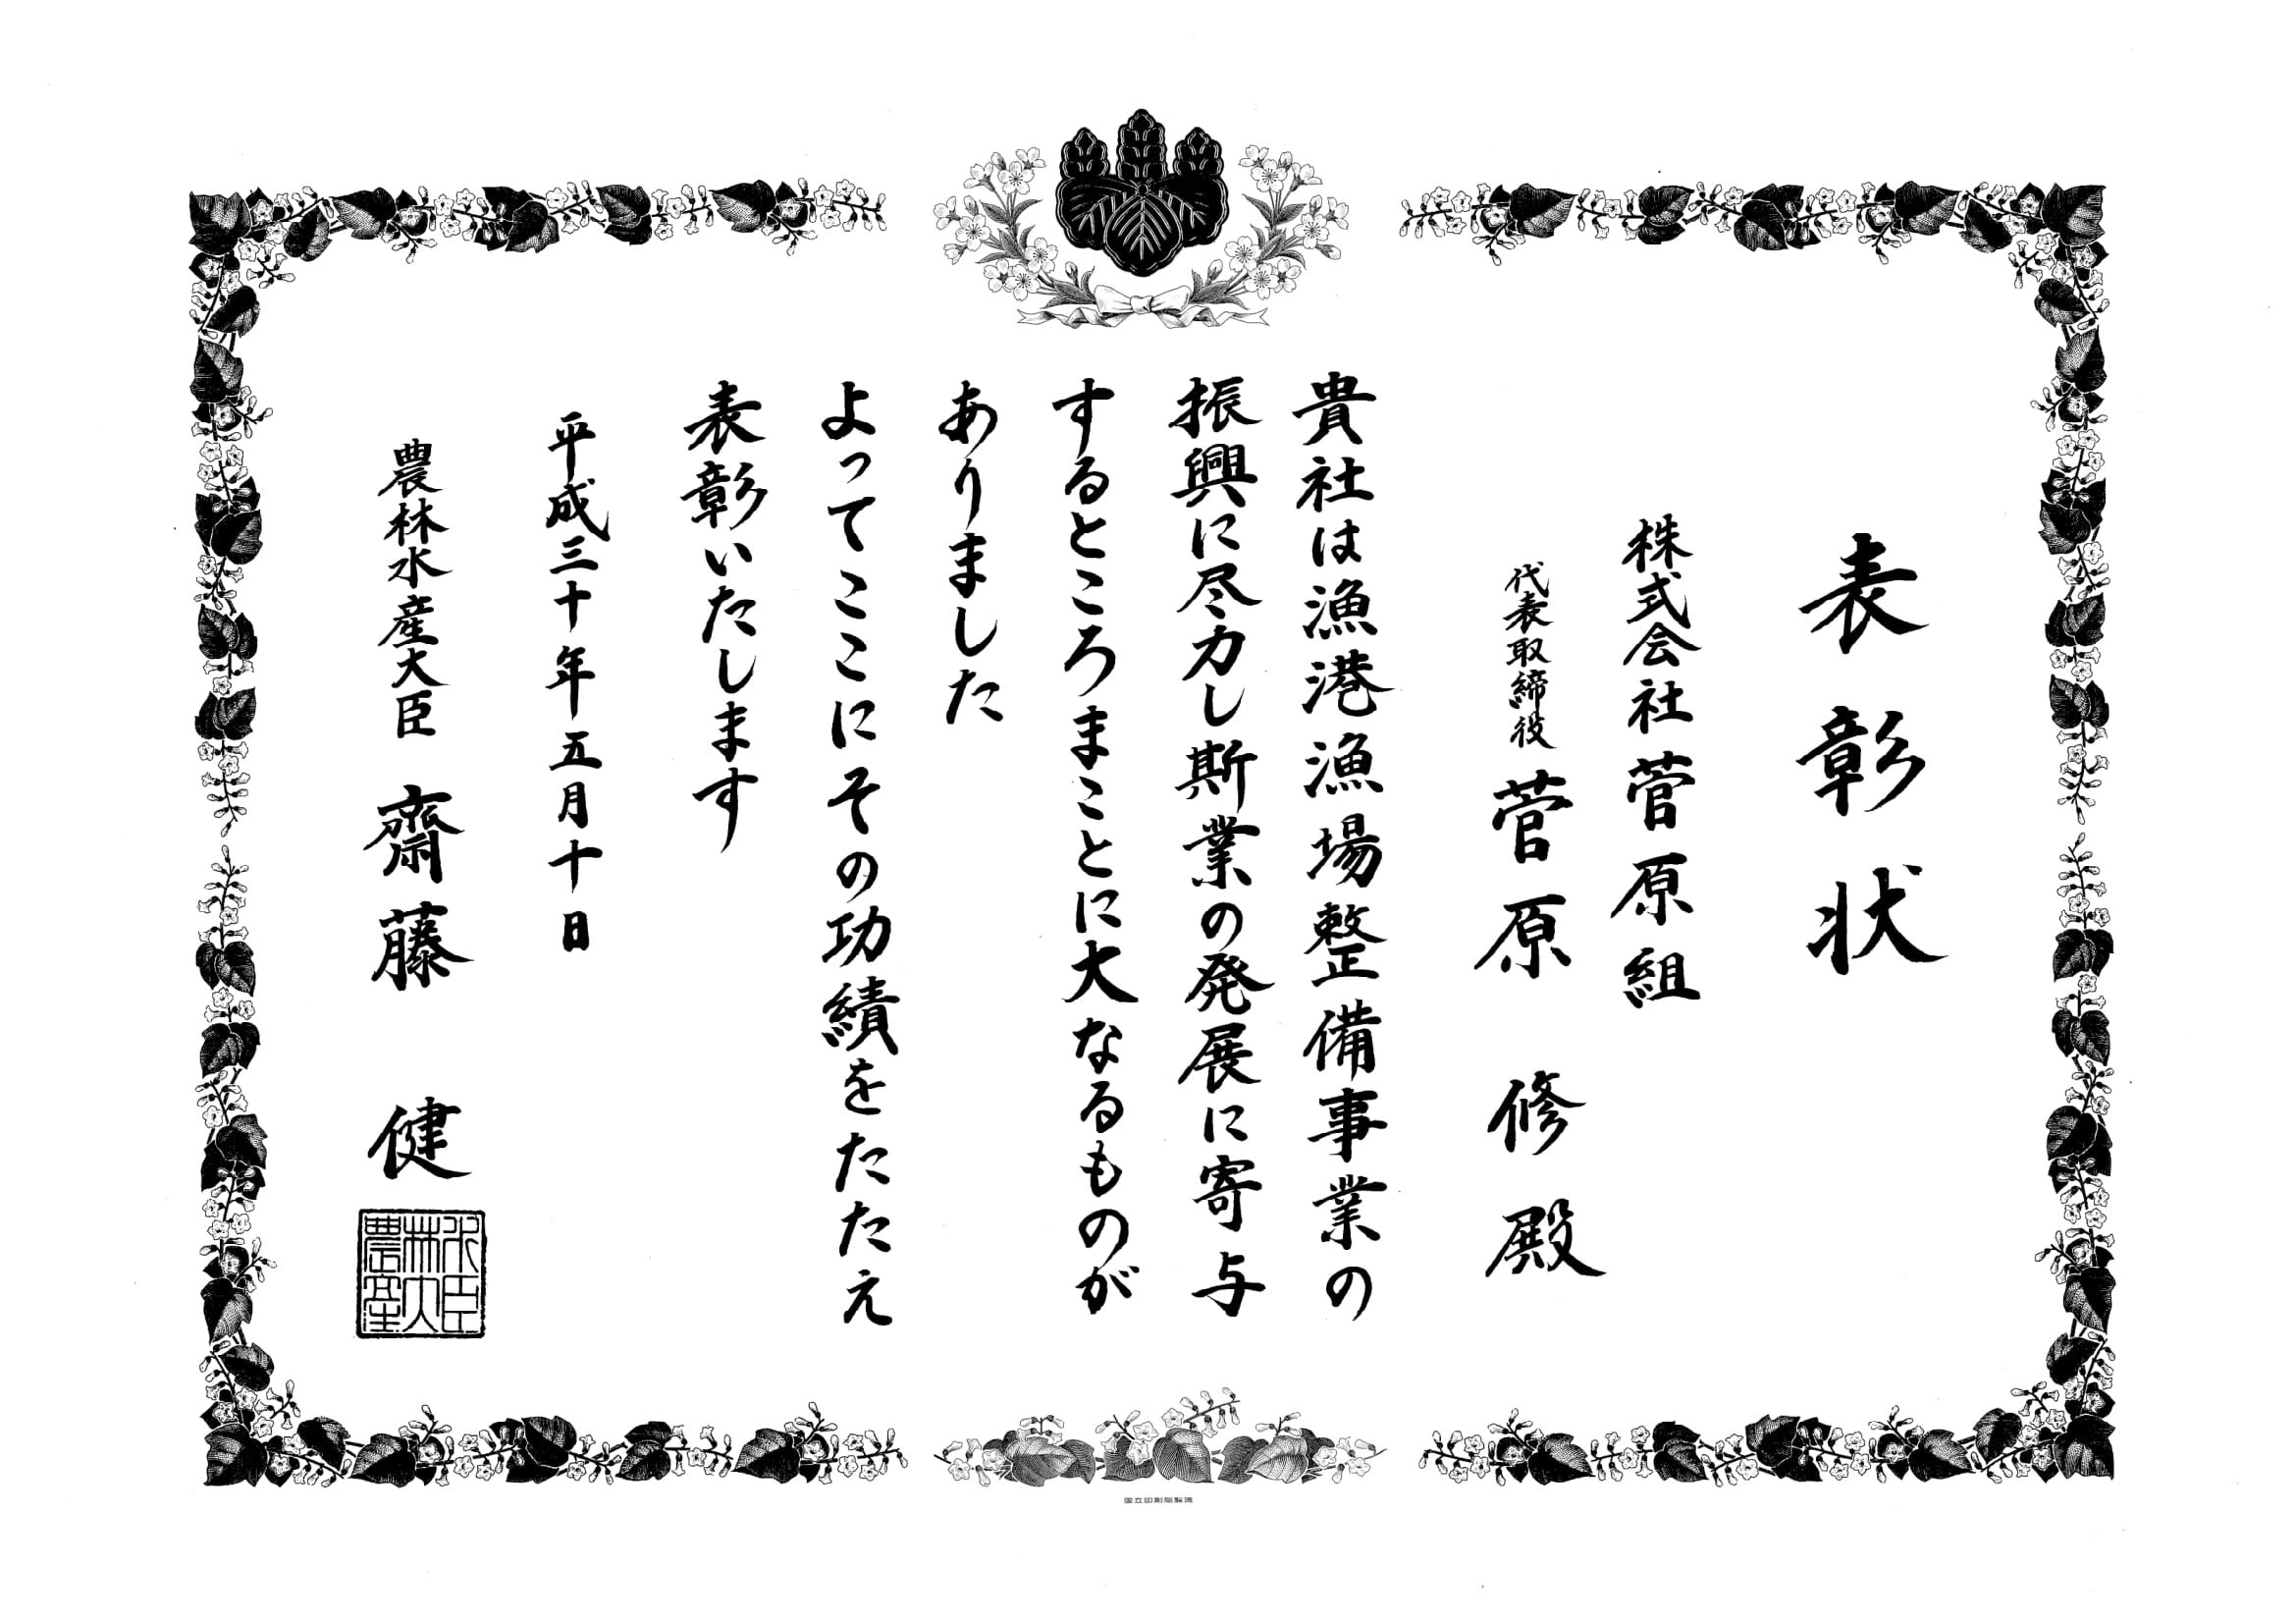 表彰状
株式会社菅原組
代表取締役 菅原 修 殿
貴社は漁港漁場整備事業の
振興に尽力し斯業の発展に寄与
するところまことに大なるものが
ありました
よってここにその功績をたたえ
表彰いたします
平成三十年五月十日
農林水産大臣 齋藤 健
農林水産大臣
国立印刷局製造